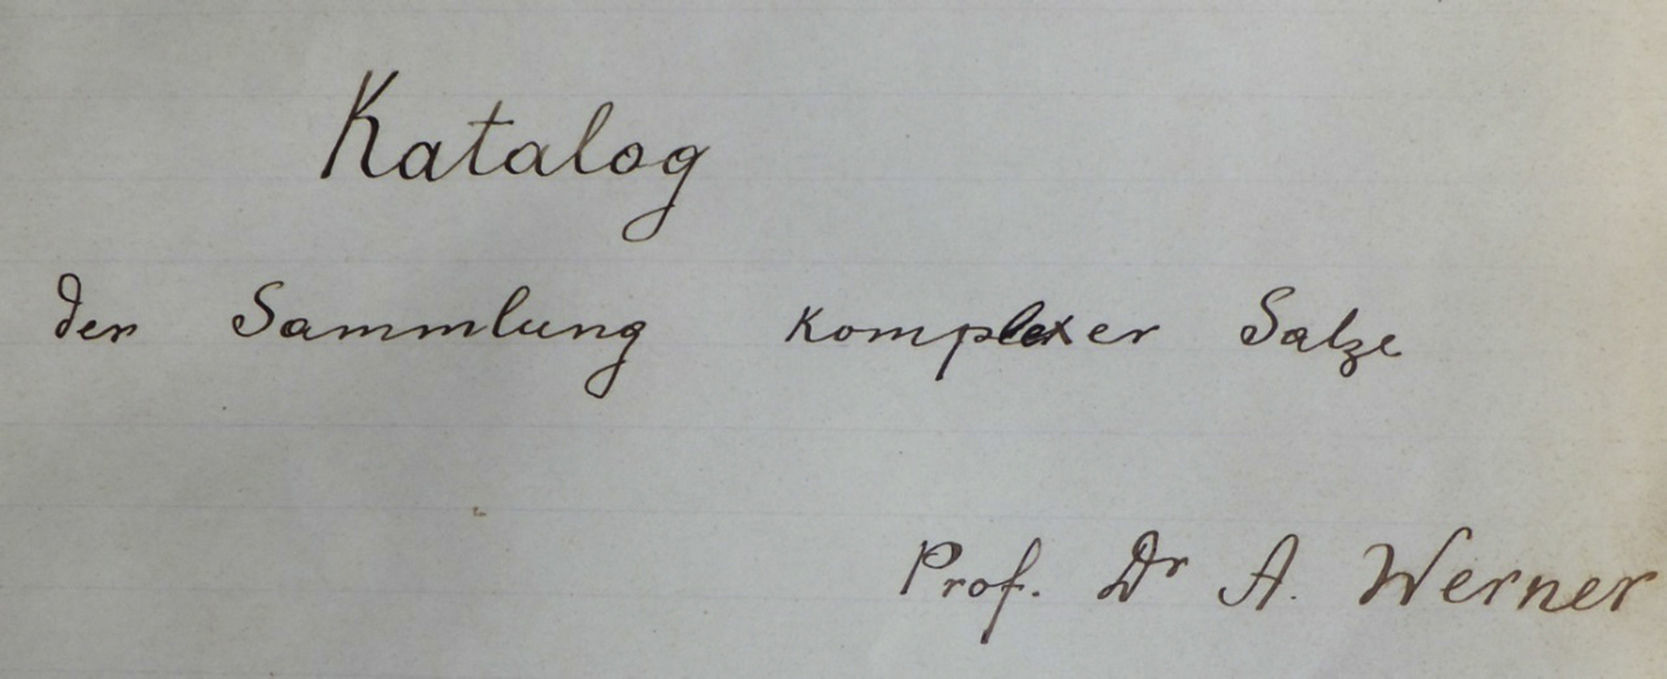 Katalog
der Sammlung komplexer Salze
Prof. Dr A. Werner